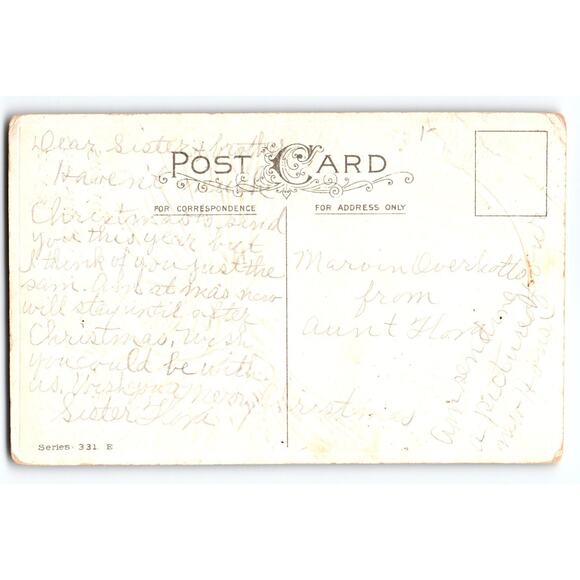 Dear Sister + brother
POST CARD
Haven't
FOR CORRESPONDENCE
FOR ADDRESS ONLY
Christmas to send
you this year but
I think of you just the
sam. Am at mas now
will stay until after
Christmas, Wish
you could be with
us, Wish you Merry Christmas
Sister Flora
Marvin
from
aunt Flora
am sending
a picture of
new house
Series 331 E